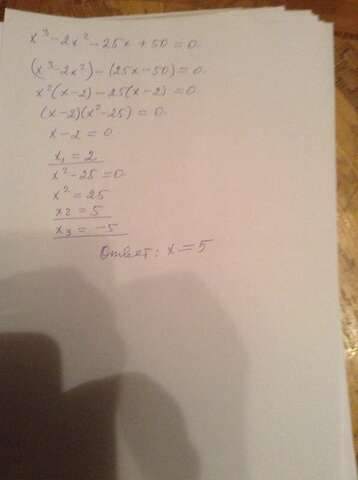 x³-2x²-25x+50=0.
(x³-2x²)-(25x-50)=0.
x²(x-2)-25(x-2)=0.
(x-2)(x²-25)=0.
x-2=0
x₁=2
x²-25=0
x²=25
x2=5
x₃=-5
Ответ: x=5